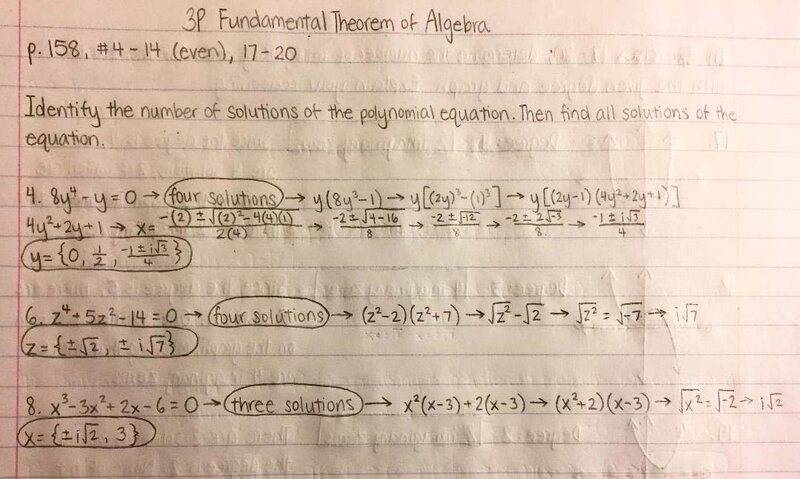 3P Fundamental Theorem of Algebra
p. 158, #4-14 (even), 17-20
Identify the number of solutions of the polynomial equation. Then find all solutions of the
equation.
4. 8y⁴ - y = 0 → four solutions → y(8y³-1) → y[(2y)³-(1)³] → y[(2y-1)(4y²+2y+1)]
4y²+2y+1 → x= -(2) ± √(2)²-4(4)(1) / 2(4) → -2 ± √4-16 / 8 → -2 ± √-12 / 8 → -2 ± 2√-3 / 8 → -1 ± i√3 / 4
y= {0, 1/2, -1 ± i√3 / 4}
6. z⁴ + 5z² - 14 = 0 → four solutions → (z²-2)(z²+7) → √z² - √2 → √z² = √-7 → i√7
z = {±√2, ± i√7}
8. x³-3x²+2x-6 = 0 → three solutions → x²(x-3)+2(x-3) → (x²+2)(x-3) → √x² = √-2 → i√2
x= {±i√2, 3}